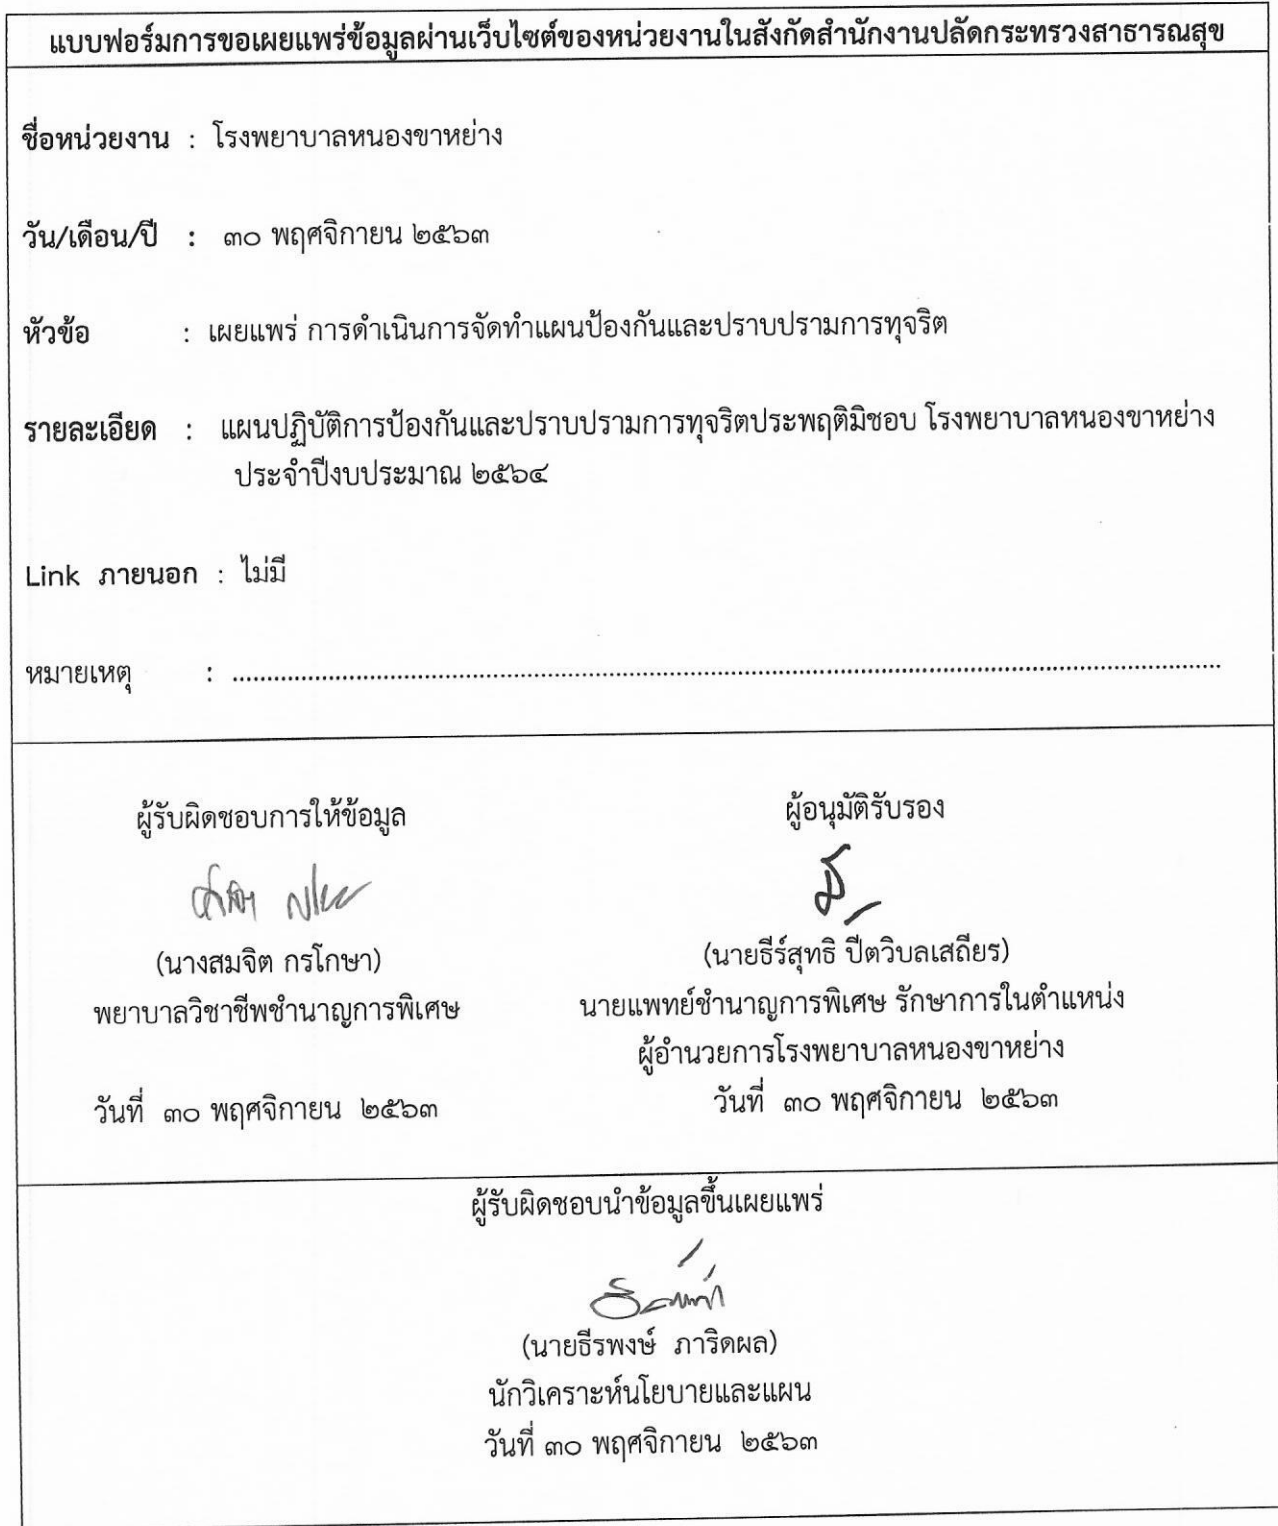 แบบฟอร์มการขอเผยแพร่ข้อมูลผ่านเว็บไซต์ของหน่วยงานในสังกัดสำนักงานปลัดกระทรวงสาธารณสุข
ชื่อหน่วยงาน : โรงพยาบาลหนองขาหย่าง
วัน/เดือน/ปี : ๓๐ พฤศจิกายน ๒๕๖๓
หัวข้อ : เผยแพร่ การดำเนินการจัดทำแผนป้องกันและปราบปรามการทุจริต
รายละเอียด : แผนปฏิบัติการป้องกันและปราบปรามการทุจริตประพฤติมิชอบ โรงพยาบาลหนองขาหย่าง
ประจำปีงบประมาณ ๒๕๖๔
Link ภายนอก : ไม่มี
หมายเหตุ : ................................................................................
ผู้รับผิดชอบการให้ข้อมูล
(นางสมจิต กรโกษา)
พยาบาลวิชาชีพชำนาญการพิเศษ
วันที่ ๓๐ พฤศจิกายน ๒๕๖๓
ผู้อนุมัติรับรอง
(นายธีร์สุทธิ ปีตวิบลเสถียร)
นายแพทย์ชำนาญการพิเศษ รักษาการในตำแหน่ง
ผู้อำนวยการโรงพยาบาลหนองขาหย่าง
วันที่ ๓๐ พฤศจิกายน ๒๕๖๓
ผู้รับผิดชอบนำข้อมูลขึ้นเผยแพร่
(นายธีรพงษ์ ภาริดผล)
นักวิเคราะห์นโยบายและแผน
วันที่ ๓๐ พฤศจิกายน ๒๕๖๓